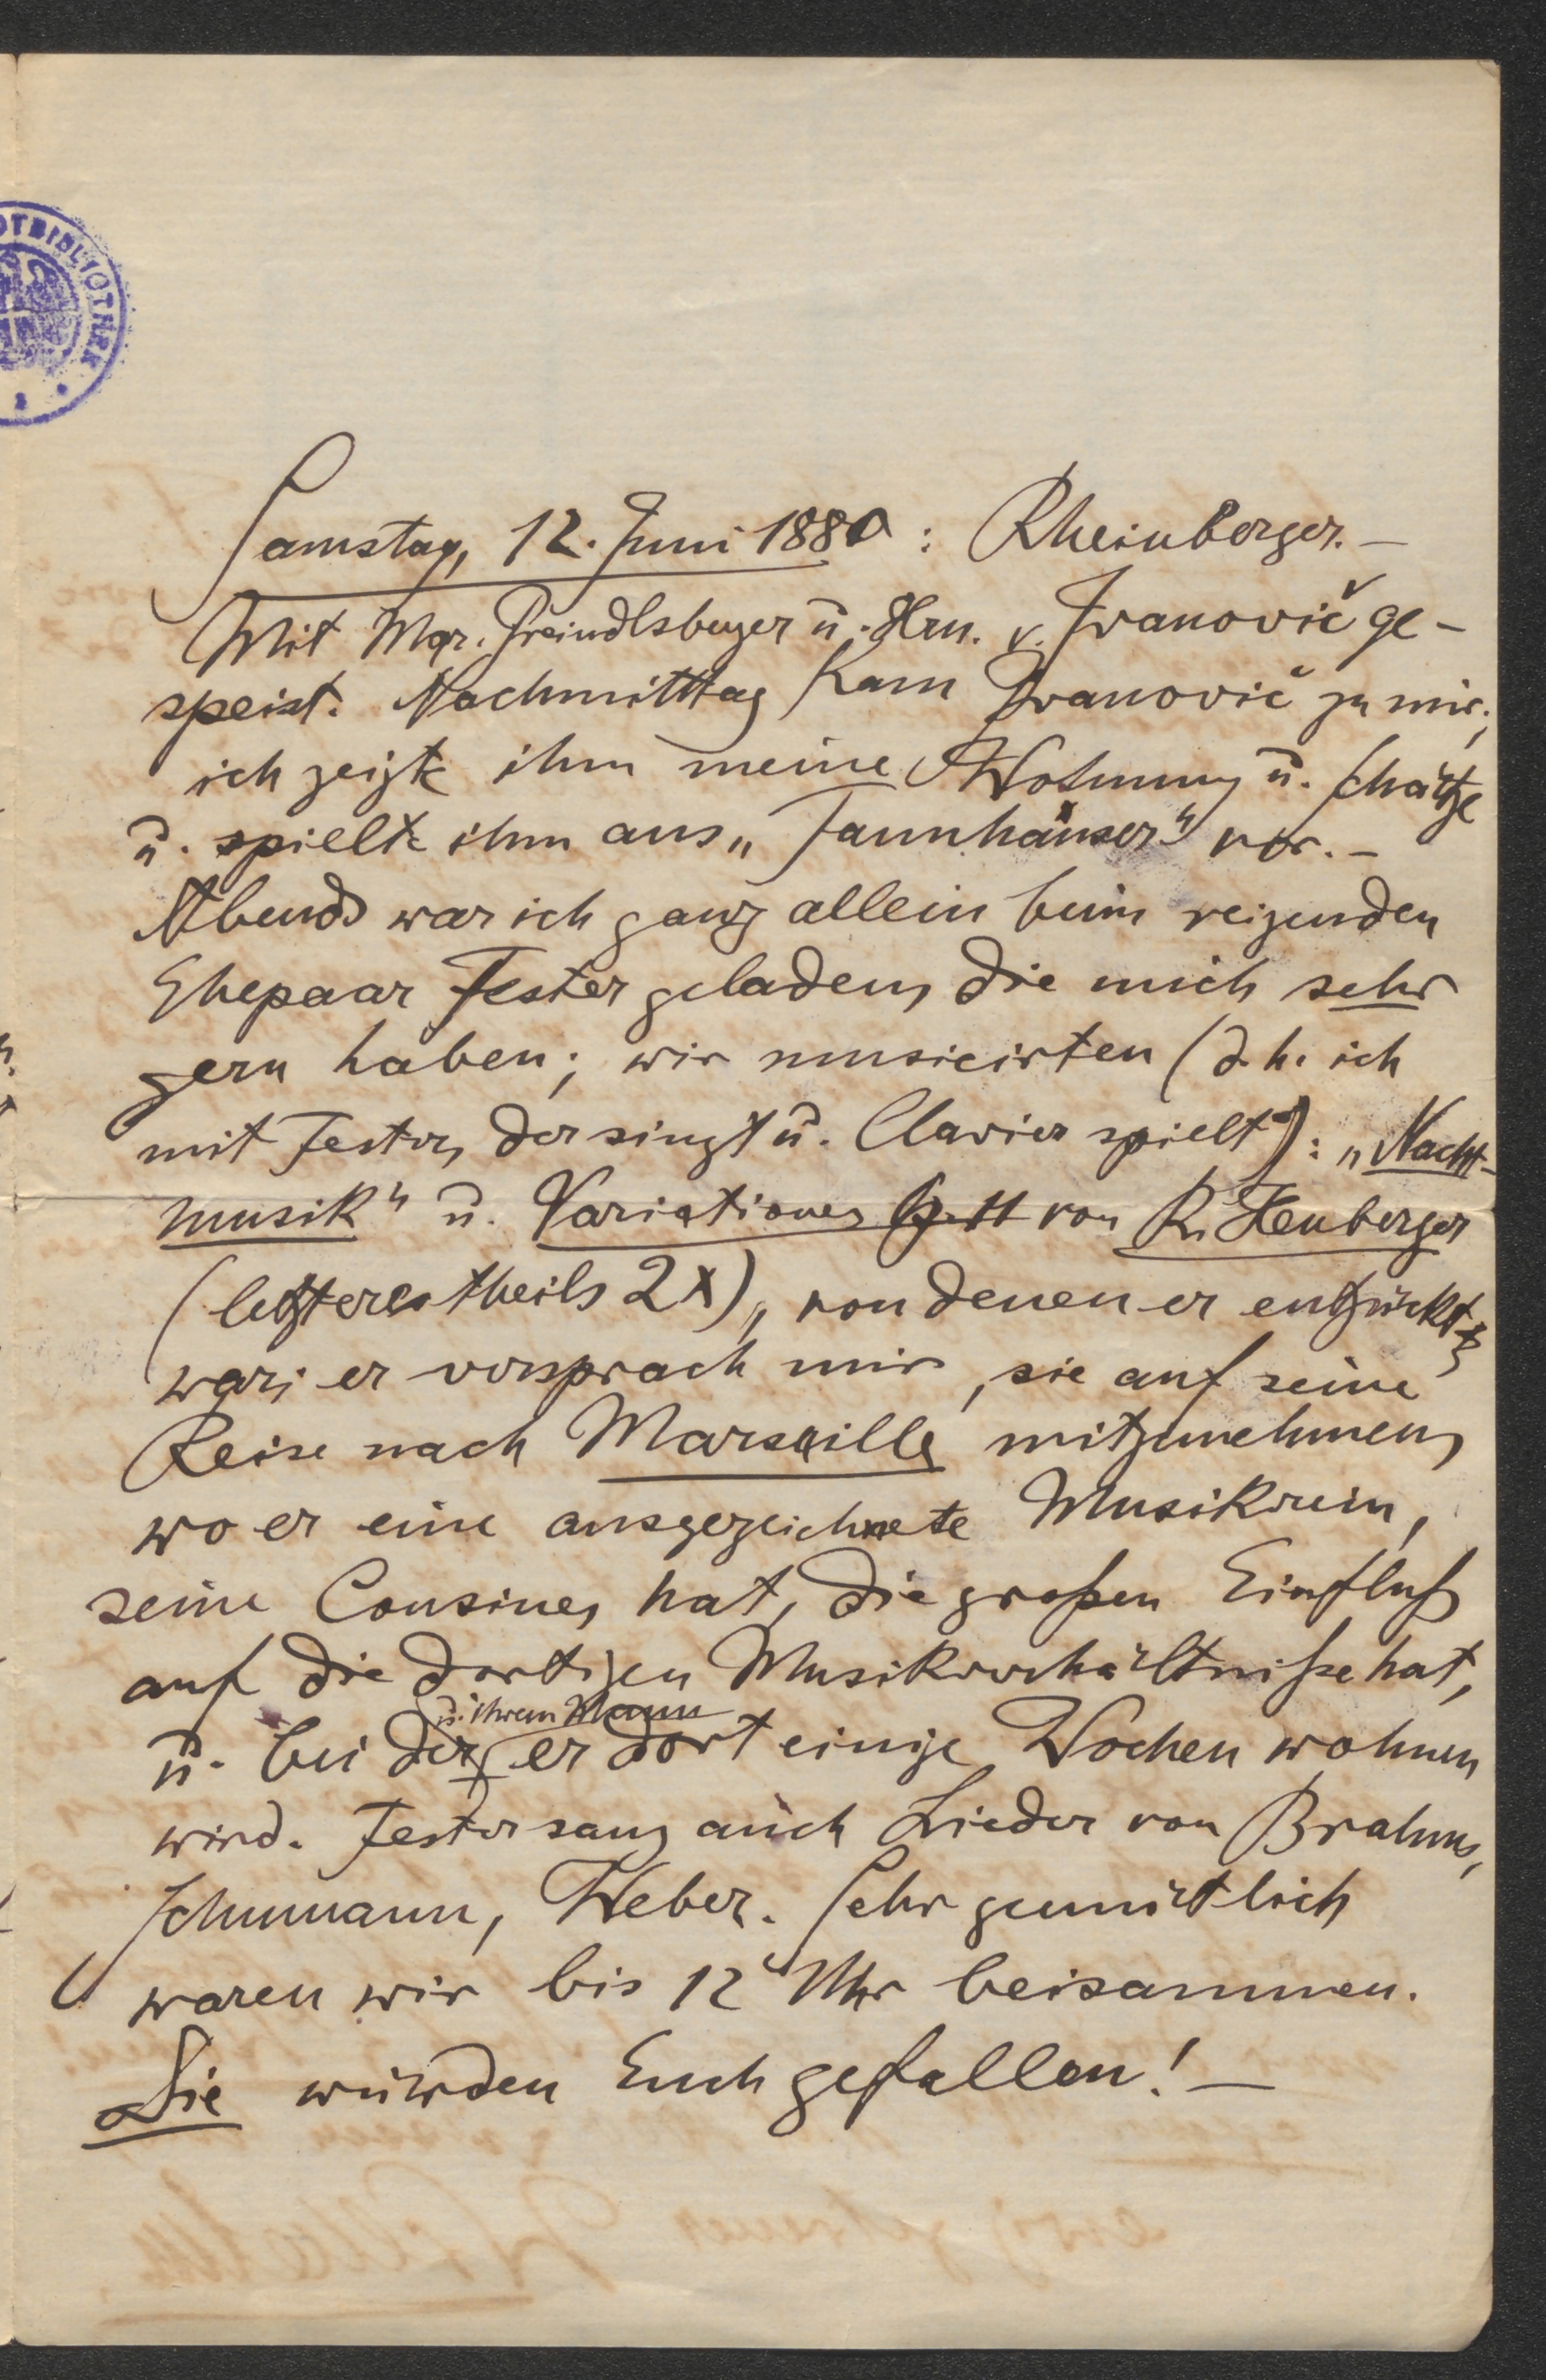 OTBIBLIOTHEK
Samstag, 12. Juni 1880: Rheinberger. –
Mit Mgr. Preindlsberger u. Hrn. v. Ivanovič ge-
speist. Nachmitttag kam Ivanovič zu mir;
ich zeigte ihm meine Wohnung u. Schätze
u. spielte ihm aus „Tannhäuser“ vor. –
Abends war ich ganz allein beim reizenden
Ehepaar Fester geladen, die mich sehr
gern haben; wir musicirten (d. h. ich
mit Fester, der singt u. Clavier spielt): „Nacht-
musik“ u. Variationen von R. Heuberger
(letzteres theils 2x), von denen er entzückt
war; er versprach mir, sie auf seine
Reise nach Marseille mitzunehmen,
wo er eine ausgezeichnete Musikerin,
seine Cousine, hat, die großen Einfluß
auf die dortigen Musikverhältniße hat,
u. ihrem Mann
u. bei der er dort einige Wochen wohnen
wird. Fester sang auch Lieder von Brahms,
Schumann, Weber. Sehr gemütlich
waren wir bis 12 Uhr beisammen.
Die würden Euch gefallen! –